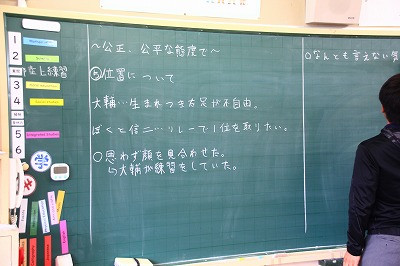 ～公正、公平な態度で～
位置について
大輔…生まれつき右足が不自由。
ぼくと信二…リレーで1位を取りたい。
○思わず顔を見合わせた。
↳大輔が練習をしていた。
○なんとも言えない気
1
2
陸上練習
3
4
5
6